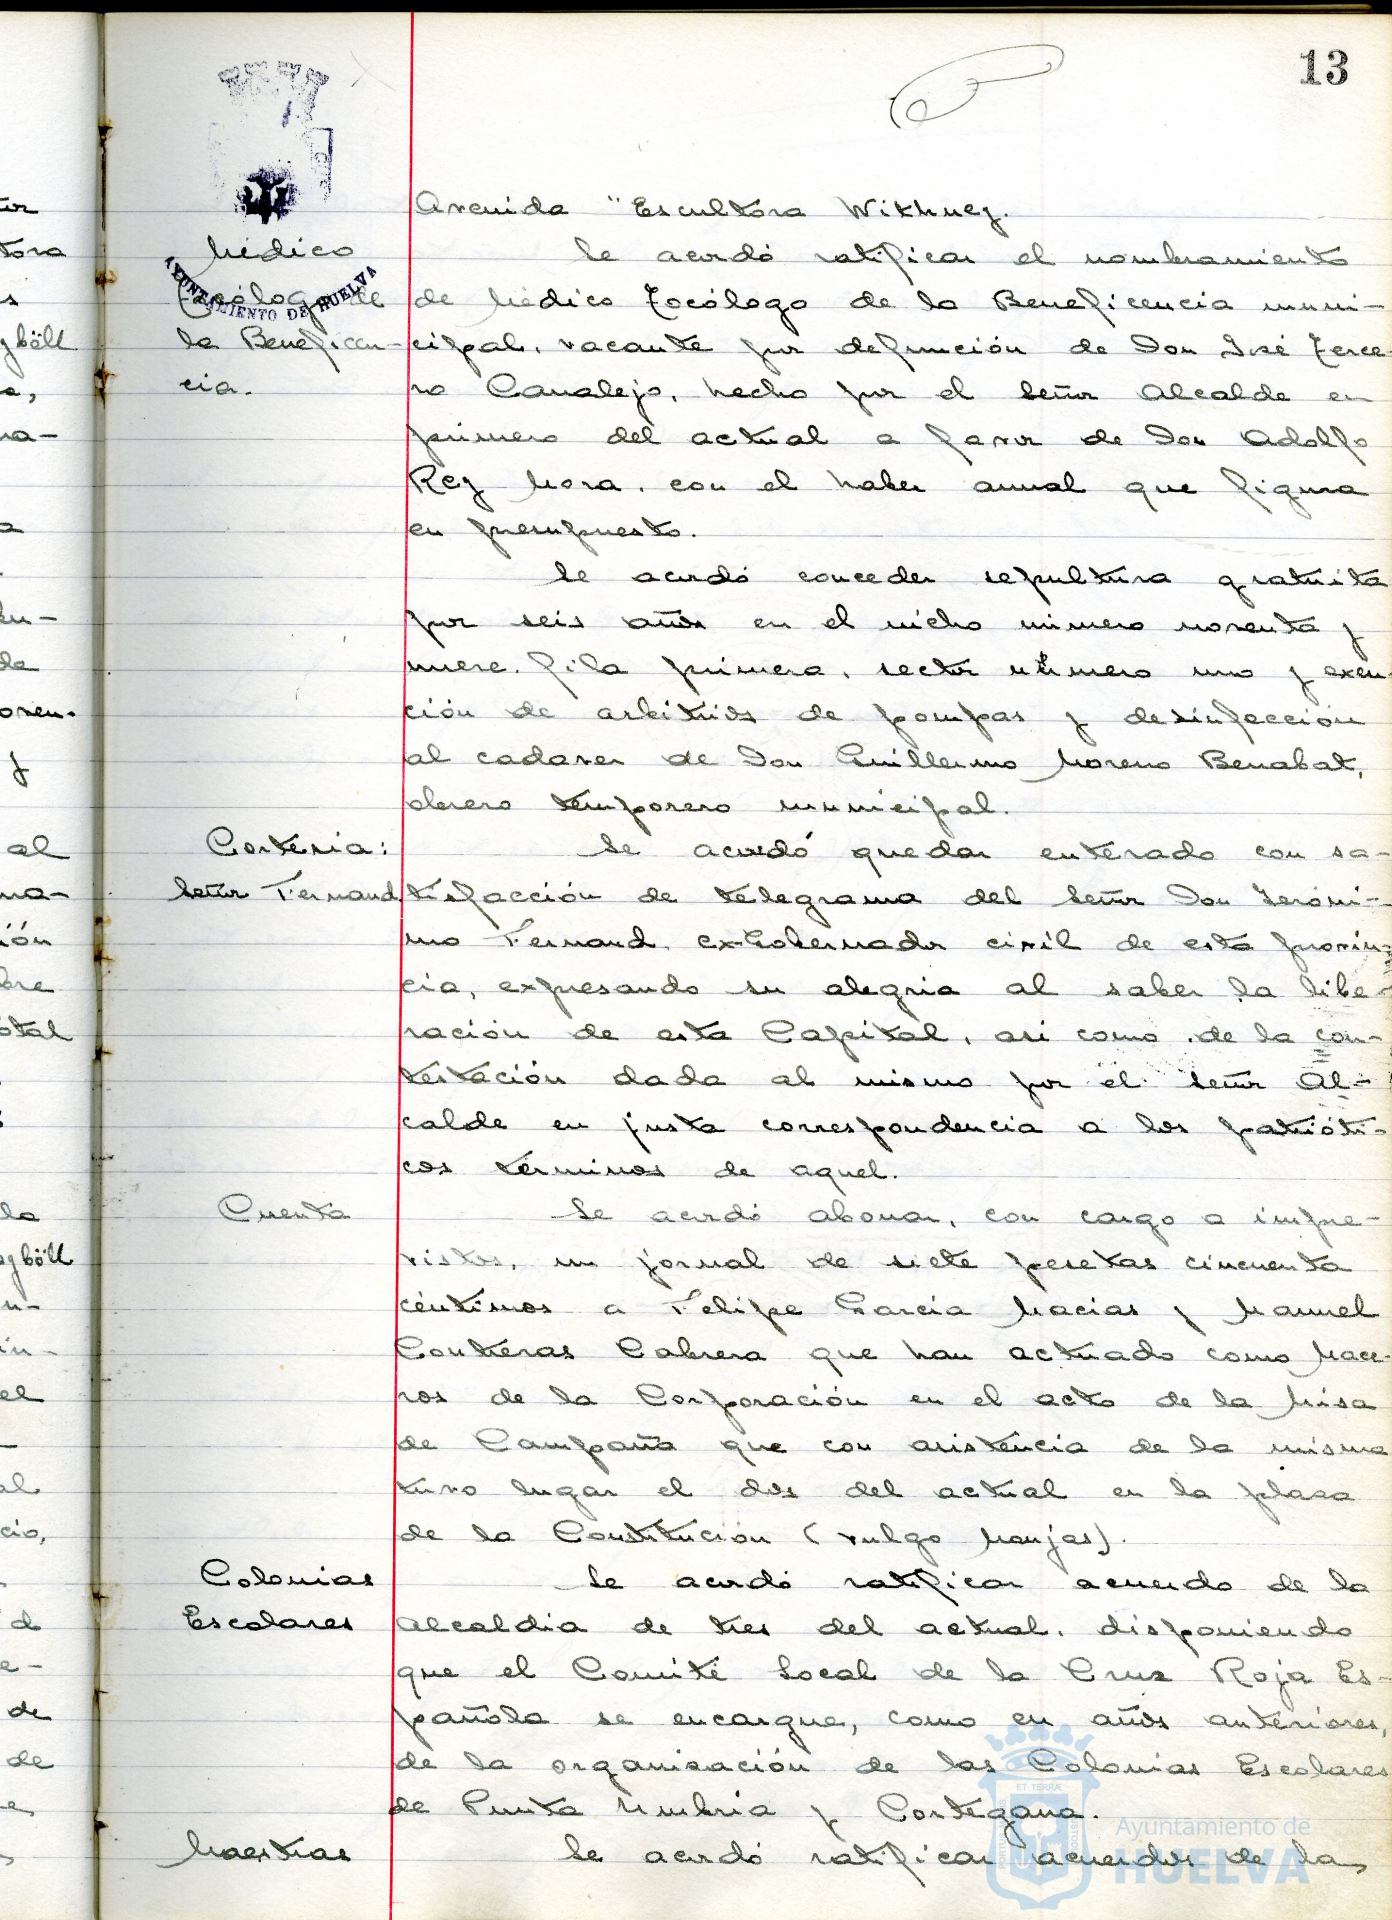 13
Avenida "Escultora Wikhney.
Médico Se acordó ratificar el nombramiento
Tocólogo de de Médico Tocólogo de la Beneficencia muni-
la Beneficen- cipal, vacante por defunción de Don José Terce-
cia. ro Canalejo, hecho por el Señor Alcalde en
primero del actual a favor de Don Adolfo
Rey Mora, con el haber anual que figura
en presupuesto.
Se acordó conceder sepultura gratuita
por seis años en el nicho número noventa y
nueve, fila primera, sector número uno y exen-
ción de arbitrios de pompas y desinfección
al cadaver de Don Guillermo Moreno Benabat,
obrero temporero municipal.
Cortesia: Se acordó quedar enterado con sa-
Señor Fernand tisfacción de telegrama del Señor Don Jeróni-
mo Fernand, ex-Gobernador civil de esta provin-
cia, expresando su alegria al saber la libe-
ración de esta Capital, asi como de la con-
testación dada al mismo por el Señor Al-
calde en justa correspondencia a los patrióti-
cos términos de aquel.
Cuenta Se acordó abonar, con cargo a impre-
vistos, un jornal de siete pesetas cincuenta
céntimos a Felipe García Macias y Manuel
Contreras Cabrera que han actuado como Mace-
ros de la Corporación en el acto de la Misa
de Campaña que con asistencia de la misma
tuvo lugar el dos del actual en la plaza
de la Constitución (vulgo Monjas).
Colonias Se acordó ratificar acuerdo de la
Escolares Alcaldia de tres del actual, disponiendo
que el Comité Local de la Cruz Roja Es-
pañola se encargue, como en años anteriores,
de la organización de las Colonias Escolares
de Punta Umbria y Cortegana.
Maestras Se acordó ratificar acuerdos de la
AYUNTAMIENTO DE HUELVA
Ayuntamiento de
HUELVA